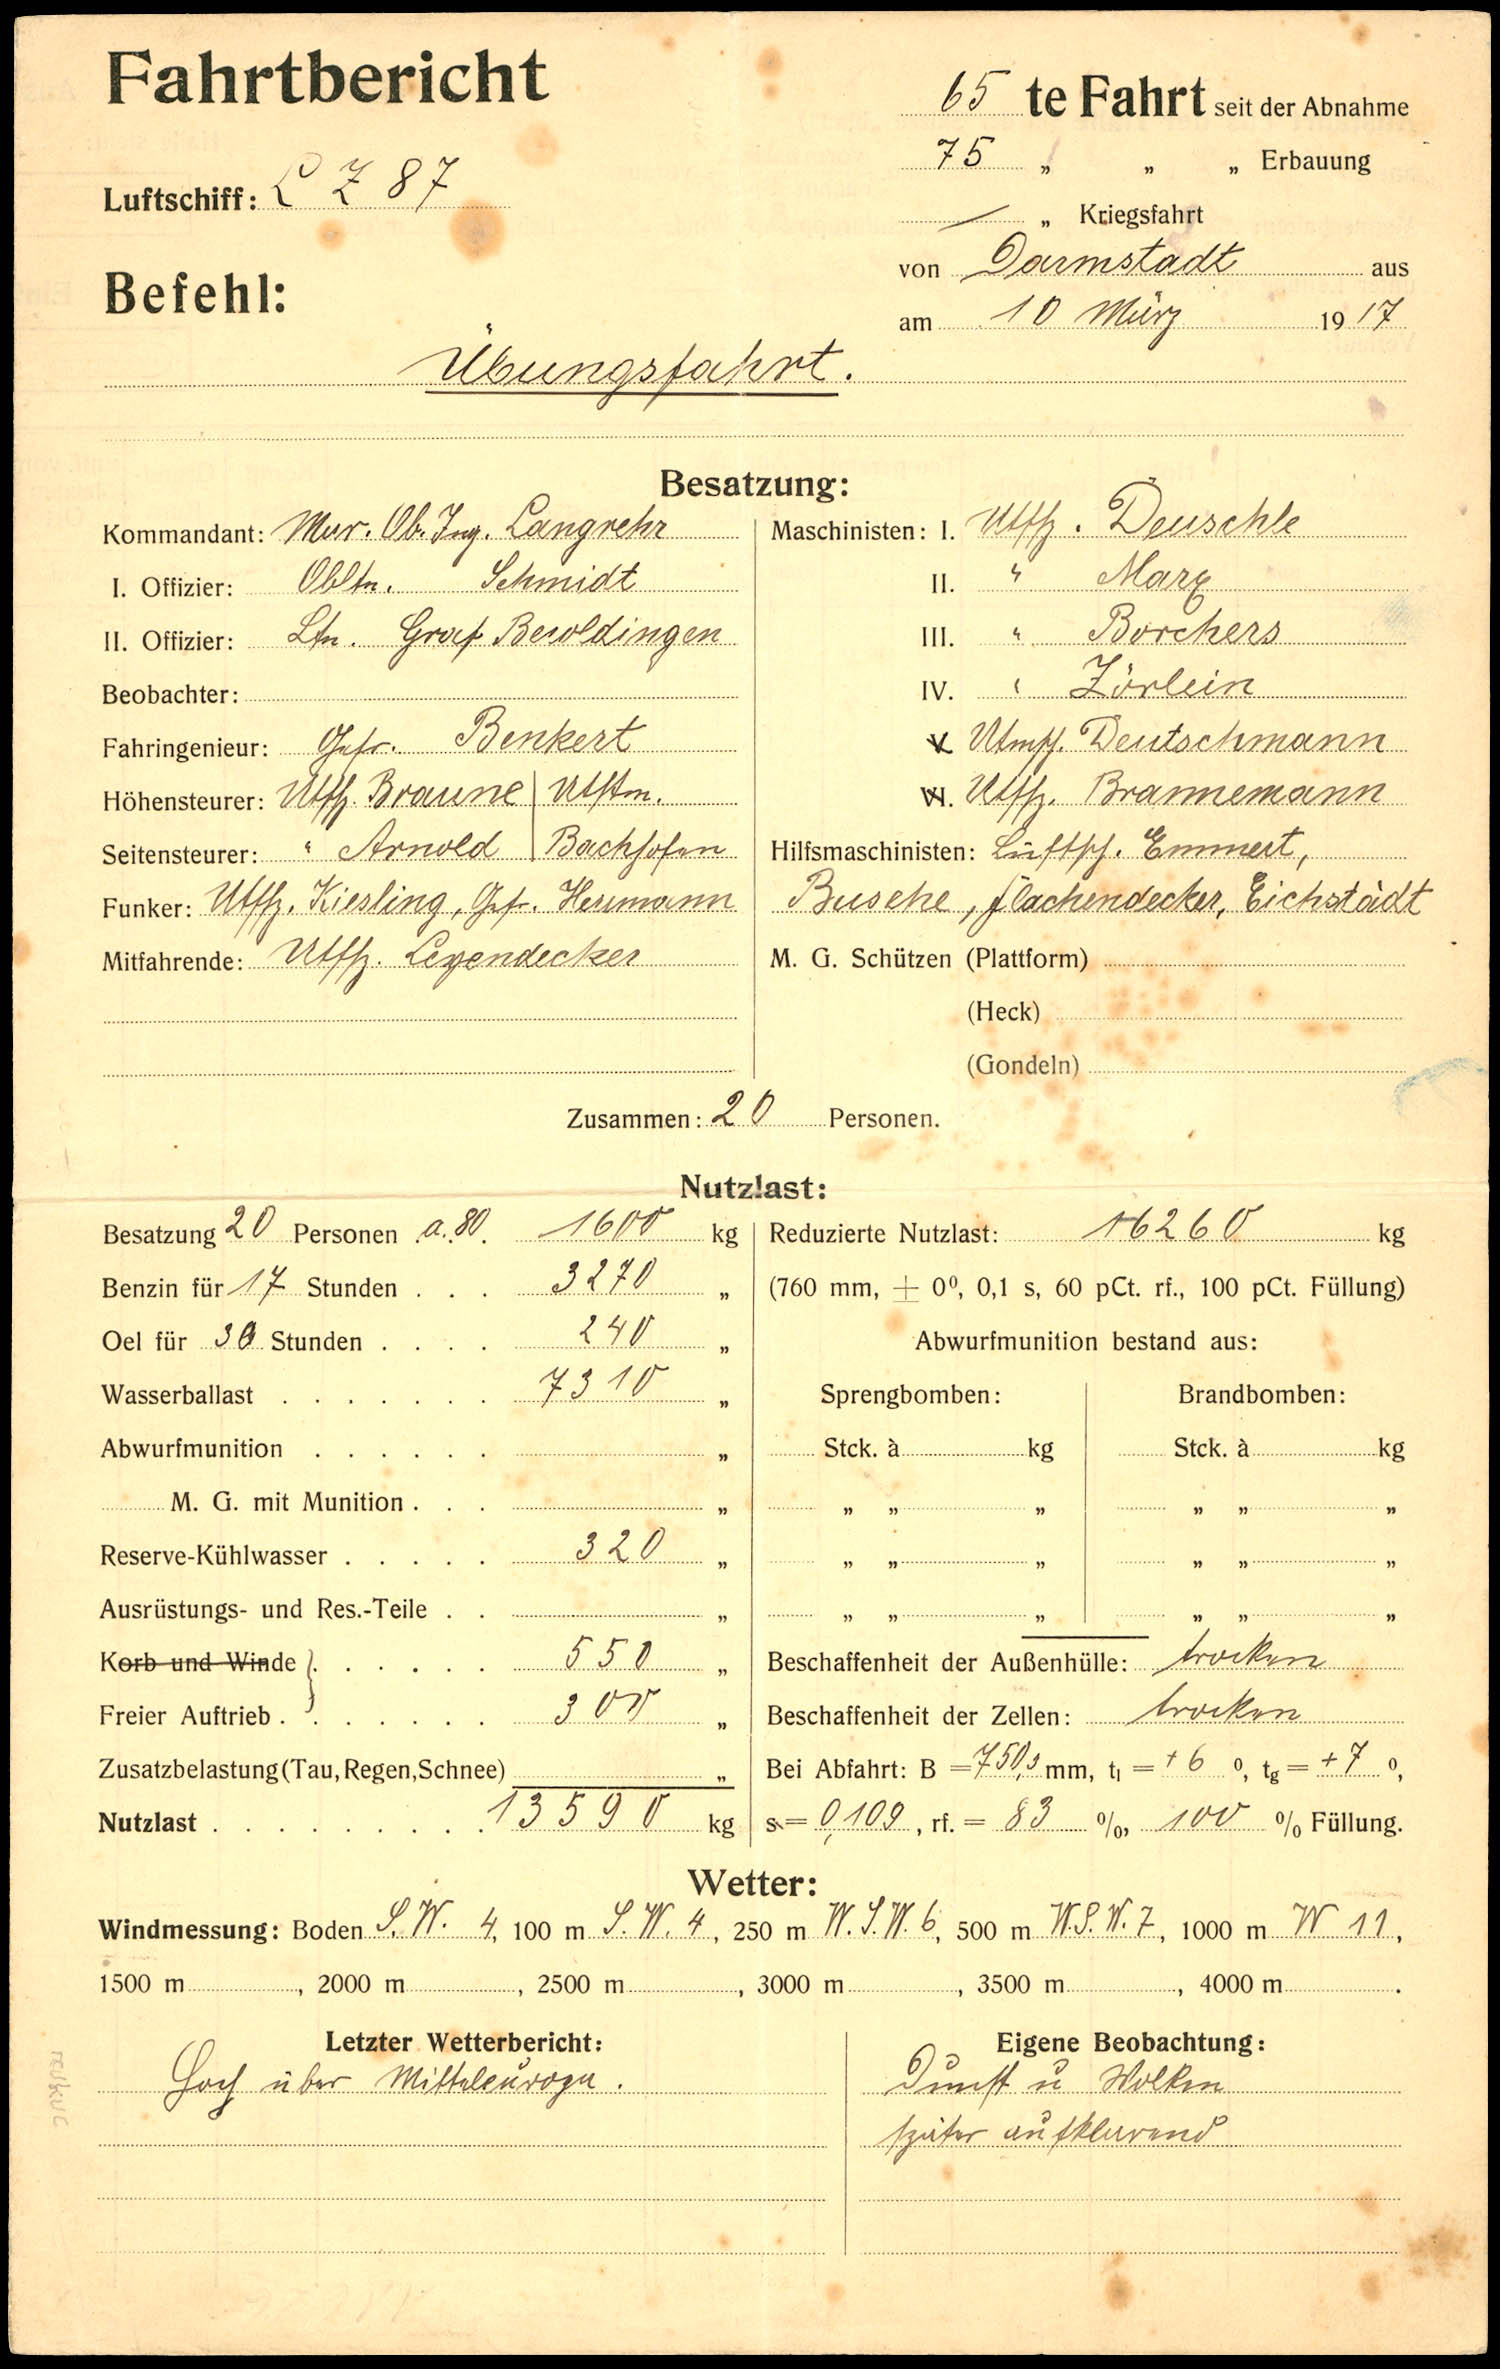 Fahrtbericht
65 te Fahrt seit der Abnahme
75 „ „ „ Erbauung
Luftschiff: L Z 87
— „ Kriegsfahrt
von Darmstadt aus
Befehl:
am 10 März 1917
Übungsfahrt.
Besatzung:
Kommandant: Mar. Ob. Ing. Langrehr
I. Offizier: Obltn. Schmidt
II. Offizier: Ltn. Graf Beroldingen
Beobachter:
Fahringenieur: Gefr. Benkert
Höhensteurer: Utffz. Braune | Utstm.
Seitensteurer: " Arnold | Bachhofen
Funker: Utffz. Kiesling, Gefr. Herrmann
Mitfahrende: Utffz. Leyendecker
Maschinisten: I. Utffz. Deuschle
II. " Marx
III. " Borchers
IV. " Zörlein
V. Deutschmann
VI. Utffz. Brannemann
Hilfsmaschinisten: Luftsch. Emmert,
Busche, Flachendecker, Eichstädt
M. G. Schützen (Plattform)
(Heck)
(Gondeln)
Zusammen: 20 Personen.
Nutzlast:
Besatzung 20 Personen a. 80. 1600 kg
Benzin für 17 Stunden . . . 3270 „
Oel für 30 Stunden . . . . 240 „
Wasserballast . . . . . . . 7310 „
Abwurfmunition . . . . . . „
M. G. mit Munition . . . „
Reserve-Kühlwasser . . . . . 320 „
Ausrüstungs- und Res.-Teile . . „
Korb und Winde . . . . . . 550 „
Freier Auftrieb . . . . . . . 300 „
Zusatzbelastung (Tau, Regen, Schnee) „
Nutzlast . . . . . . . . . 13590 kg
Reduzierte Nutzlast: 16260 kg
(760 mm, ± 0⁰, 0,1 s, 60 pCt. rf., 100 pCt. Füllung)
Abwurfmunition bestand aus:
Sprengbomben: Brandbomben:
Stck. à kg Stck. à kg
„ „ „ „ „ „
„ „ „ „ „ „
„ „ „ „ „ „
Beschaffenheit der Außenhülle: trocken
Beschaffenheit der Zellen: trocken
Bei Abfahrt: B = 750,3 mm, tl = +6 ⁰, tg = +7 ⁰,
s = 0,109, rf. = 83 %, 100 % Füllung.
Wetter:
Windmessung: Boden S. W. 4, 100 m S. W. 4, 250 m W. S. W. 6, 500 m W. S. W. 7, 1000 m W 11,
1500 m , 2000 m , 2500 m , 3000 m , 3500 m , 4000 m .
Letzter Wetterbericht:
Hoch über Mitteleuropa.
Eigene Beobachtung:
Dunst u Wolken
später aufklarend